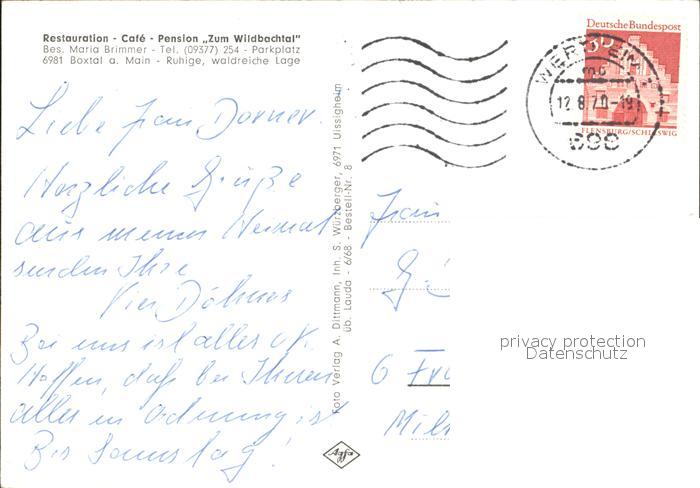 Restauration - Café - Pension „Zum Wildbachtal"
Bes. Maria Brimmer - Tel. (09377) 254 - Parkplatz
6981 Boxtal a. Main - Ruhige, waldreiche Lage
Liebe Frau Dorner.
Herzliche Grüße
aus meiner Heimat
senden Ihre
Vier Döhners
Bei uns ist alles o.K.
Hoffen, daß bei Ihnen
alles in Ordnung ist
Bis Samstag!
Foto Verlag A. Dittmann, Inh. S. Würzberger, 6971 Uissigheim
üb. Lauda - 6/68 - Bestell-Nr. 8
Agfa
Deutsche Bundespost
FLENSBURG/SCHLESWIG
WERTHEIM
12.8.70-19
698
Frau
6 Fr
Mil
privacy protection
Datenschutz